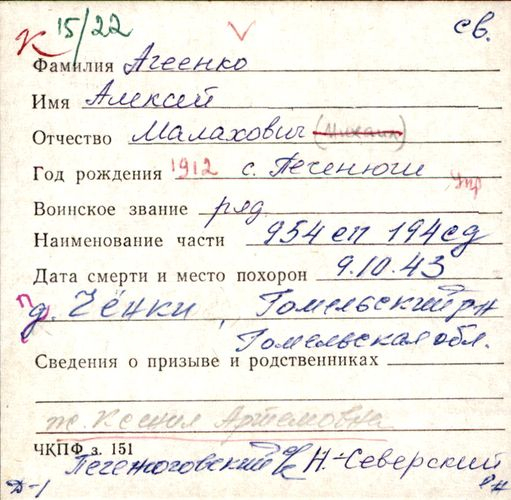 К 15/22 св.
Фамилия Агеенко
Имя Алексей
Отчество Малахович (Михаил)
Год рождения 1912 с. Печенюги
Воинское звание ряд. Упр
Наименование части 954 сп 194 сд
Дата смерти и место похорон 9.10.43
д. Чёнки, Гомельский р-н
Гомельская обл.
Сведения о призыве и родственниках
ж. Ксения Артемовна
ЧКПФ з. 151
Печенюговский с/с Н-Северский
Д-1 р-н